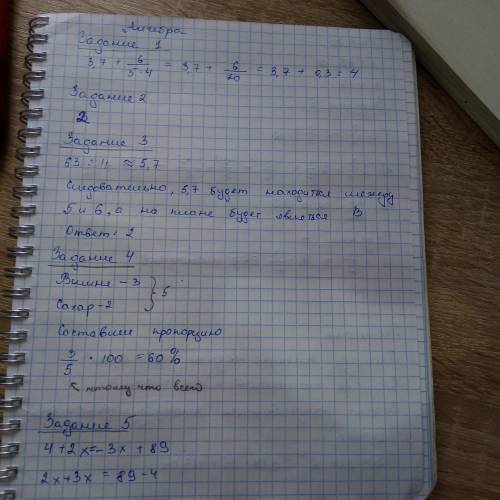 Алгебра
Задание 1
3,7 + 6/5·4 = 3,7 + 6/20 = 3,7 + 0,3 = 4
Задание 2
2
Задание 3
63 : 11 ≈ 5,7
Следовательно, 5,7 будет находится между
5 и 6, а на плане будет являться B
Ответ: 2
Задание 4
Вишня - 3
} 5
Сахар - 2
Составим пропорцию
3/5 · 100 = 60%
↖ потому что всего
Задание 5
4 + 2x = -3x + 89
2x + 3x = 89 - 4